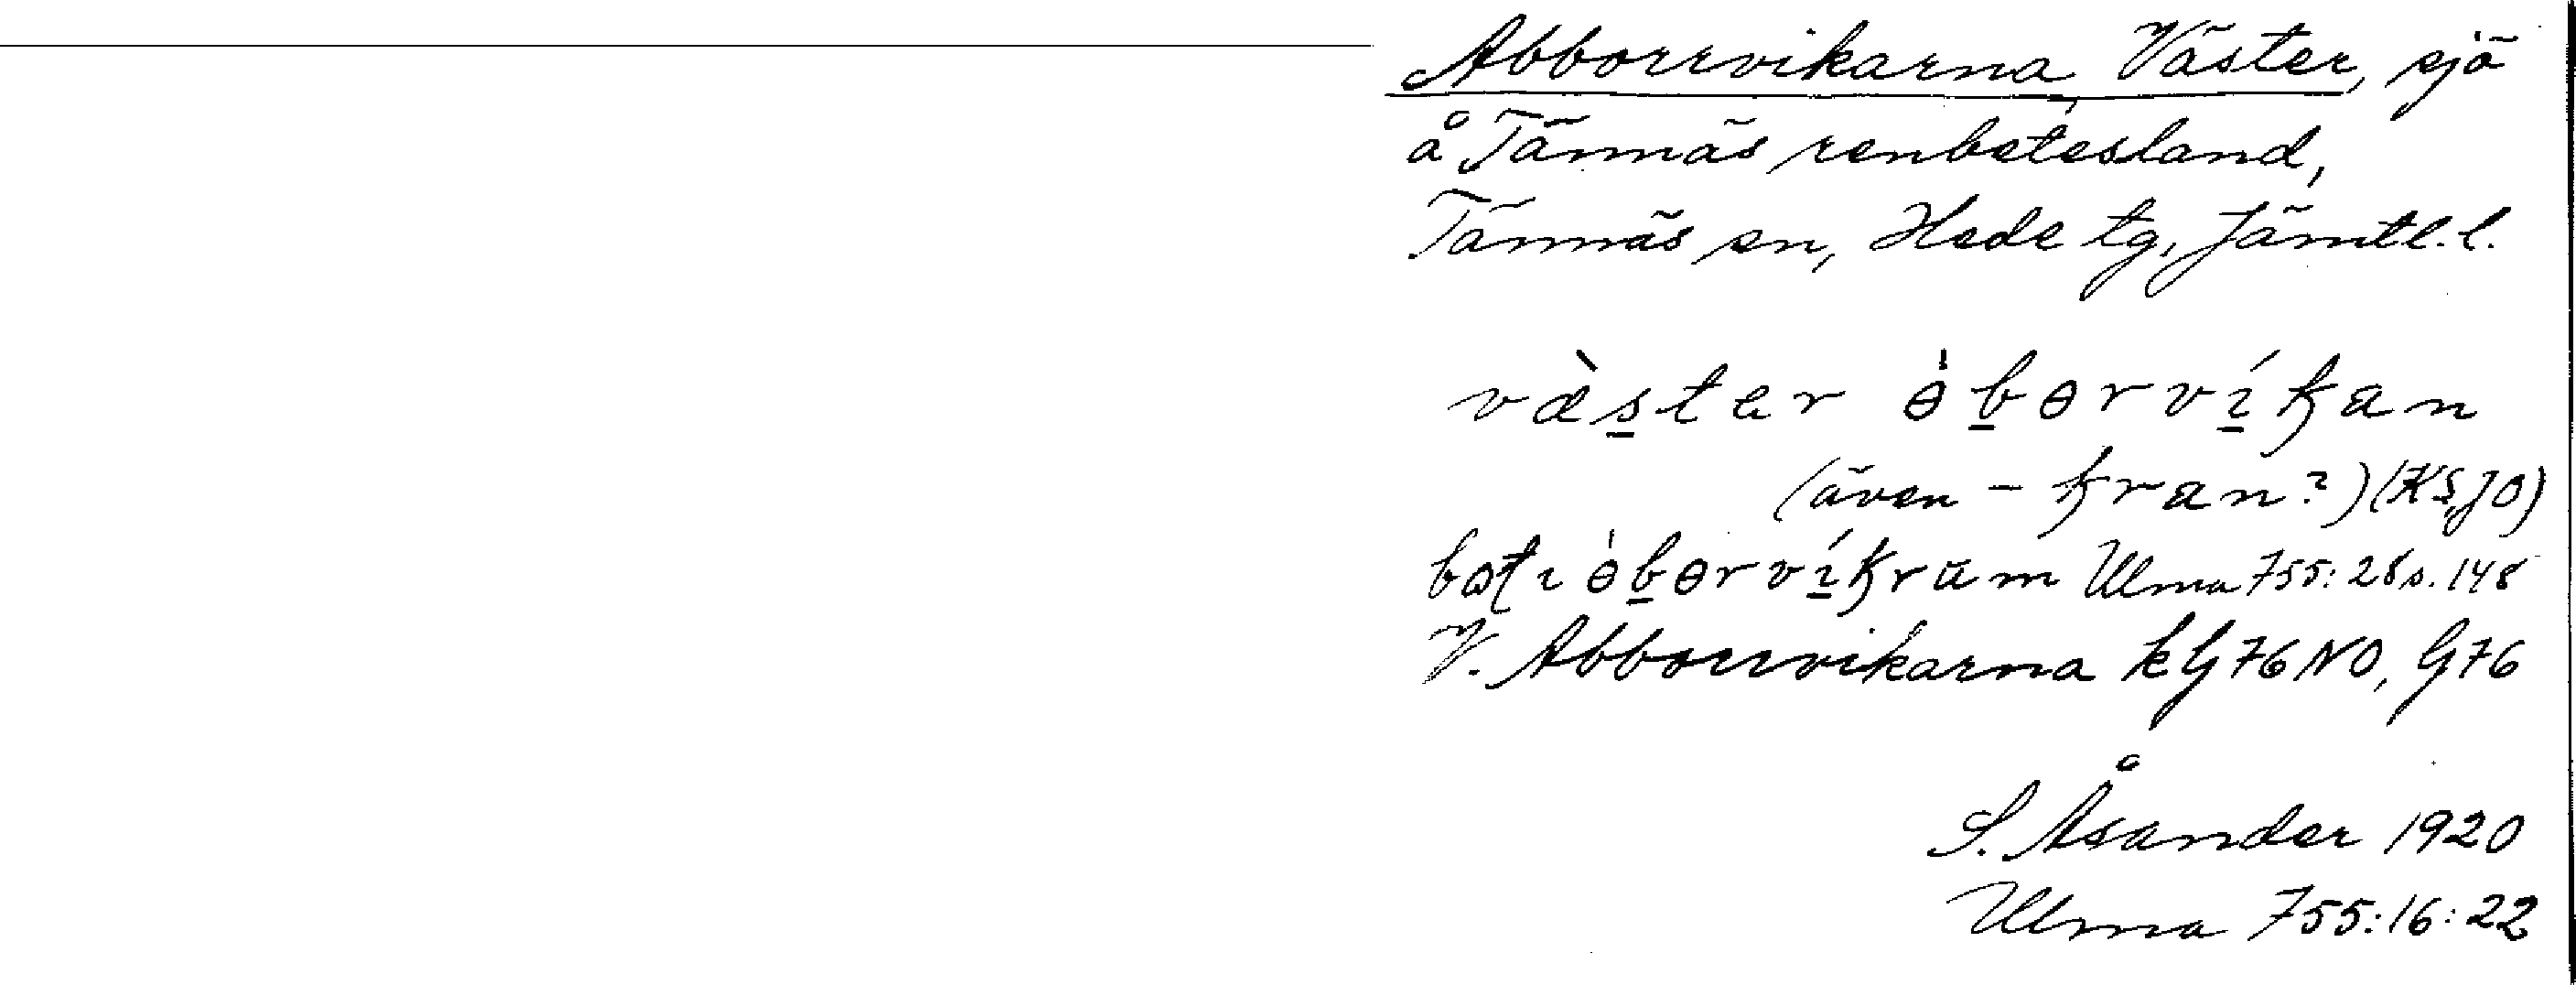 Abborrvikarna, Väster, sjö
å Tännäs renbetesland,
Tännäs sn, Hede tg, Jämtl. l.
væ̀s̱ter ɵ̀ḇɵrvı̱́ꞧan
(även - kran?) (KS, JO)
ɵḇɵrvı̱́krum Ulma 755:28 s. 148
V. Abborrvikarna kG76NO, G76
S. Åsander 1920
Ulma 755:16:22